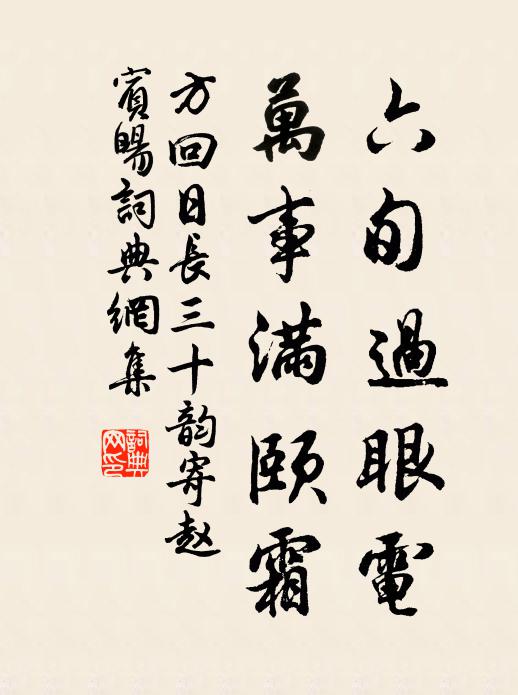 六旬過眼電
萬事滿頤霜
方回日長三十韵寄赵
賓暘詞典網集
詞典网印